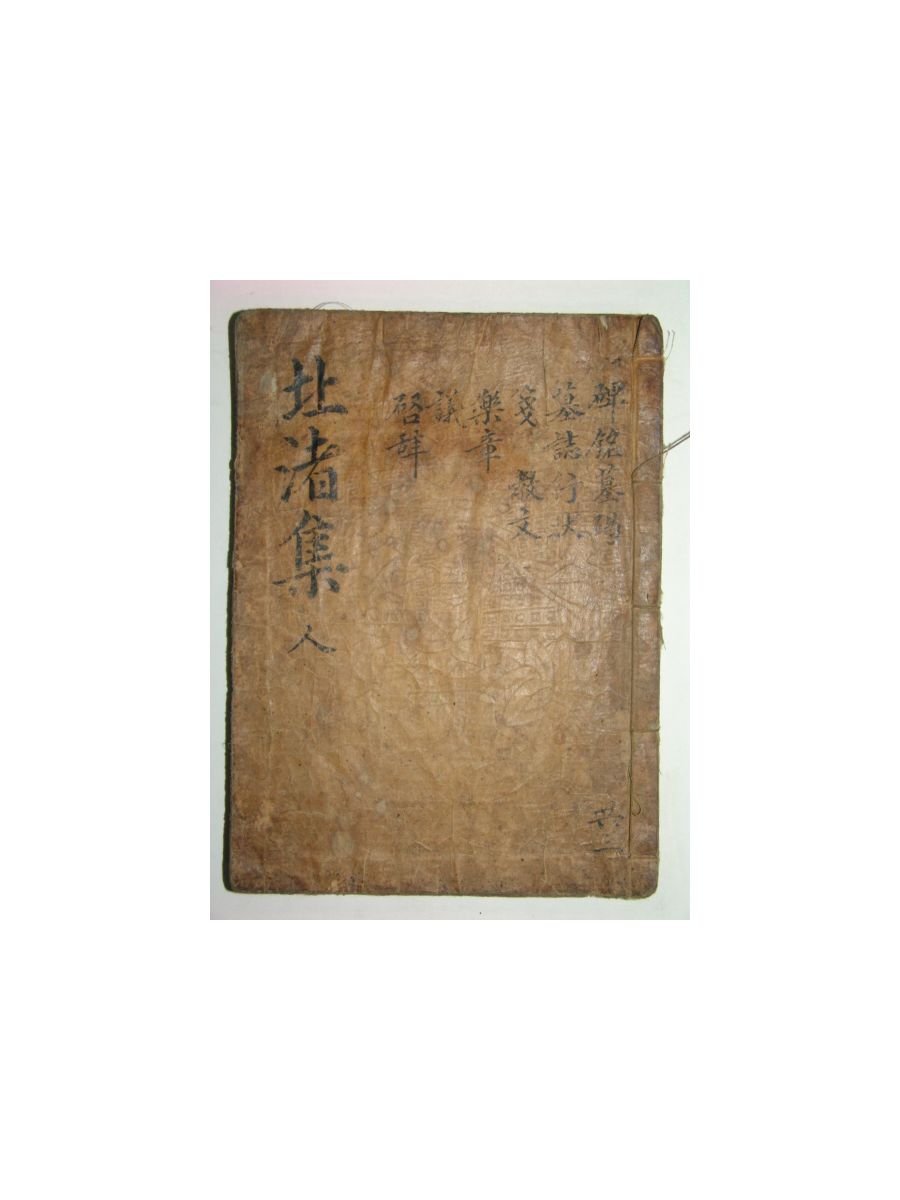 碑銘墓碣
墓誌行狀
箋 教文
樂章
議
啓辭
北渚集 人
共三